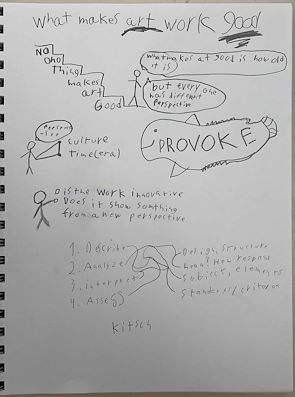 what makes art work good
No
one
Thing
makes
art
Good
what makes art good is how old
it is
but every one
has different
perspective
culture
Time(era)
PROVOKE
is the work innovative
Does it show somthing
from a new perspective
1. Describe
2. Analyze
3. interpret
4. Assess
Design, structure
mean? How respond
subject, elements
Standards/criterion
Kitsch